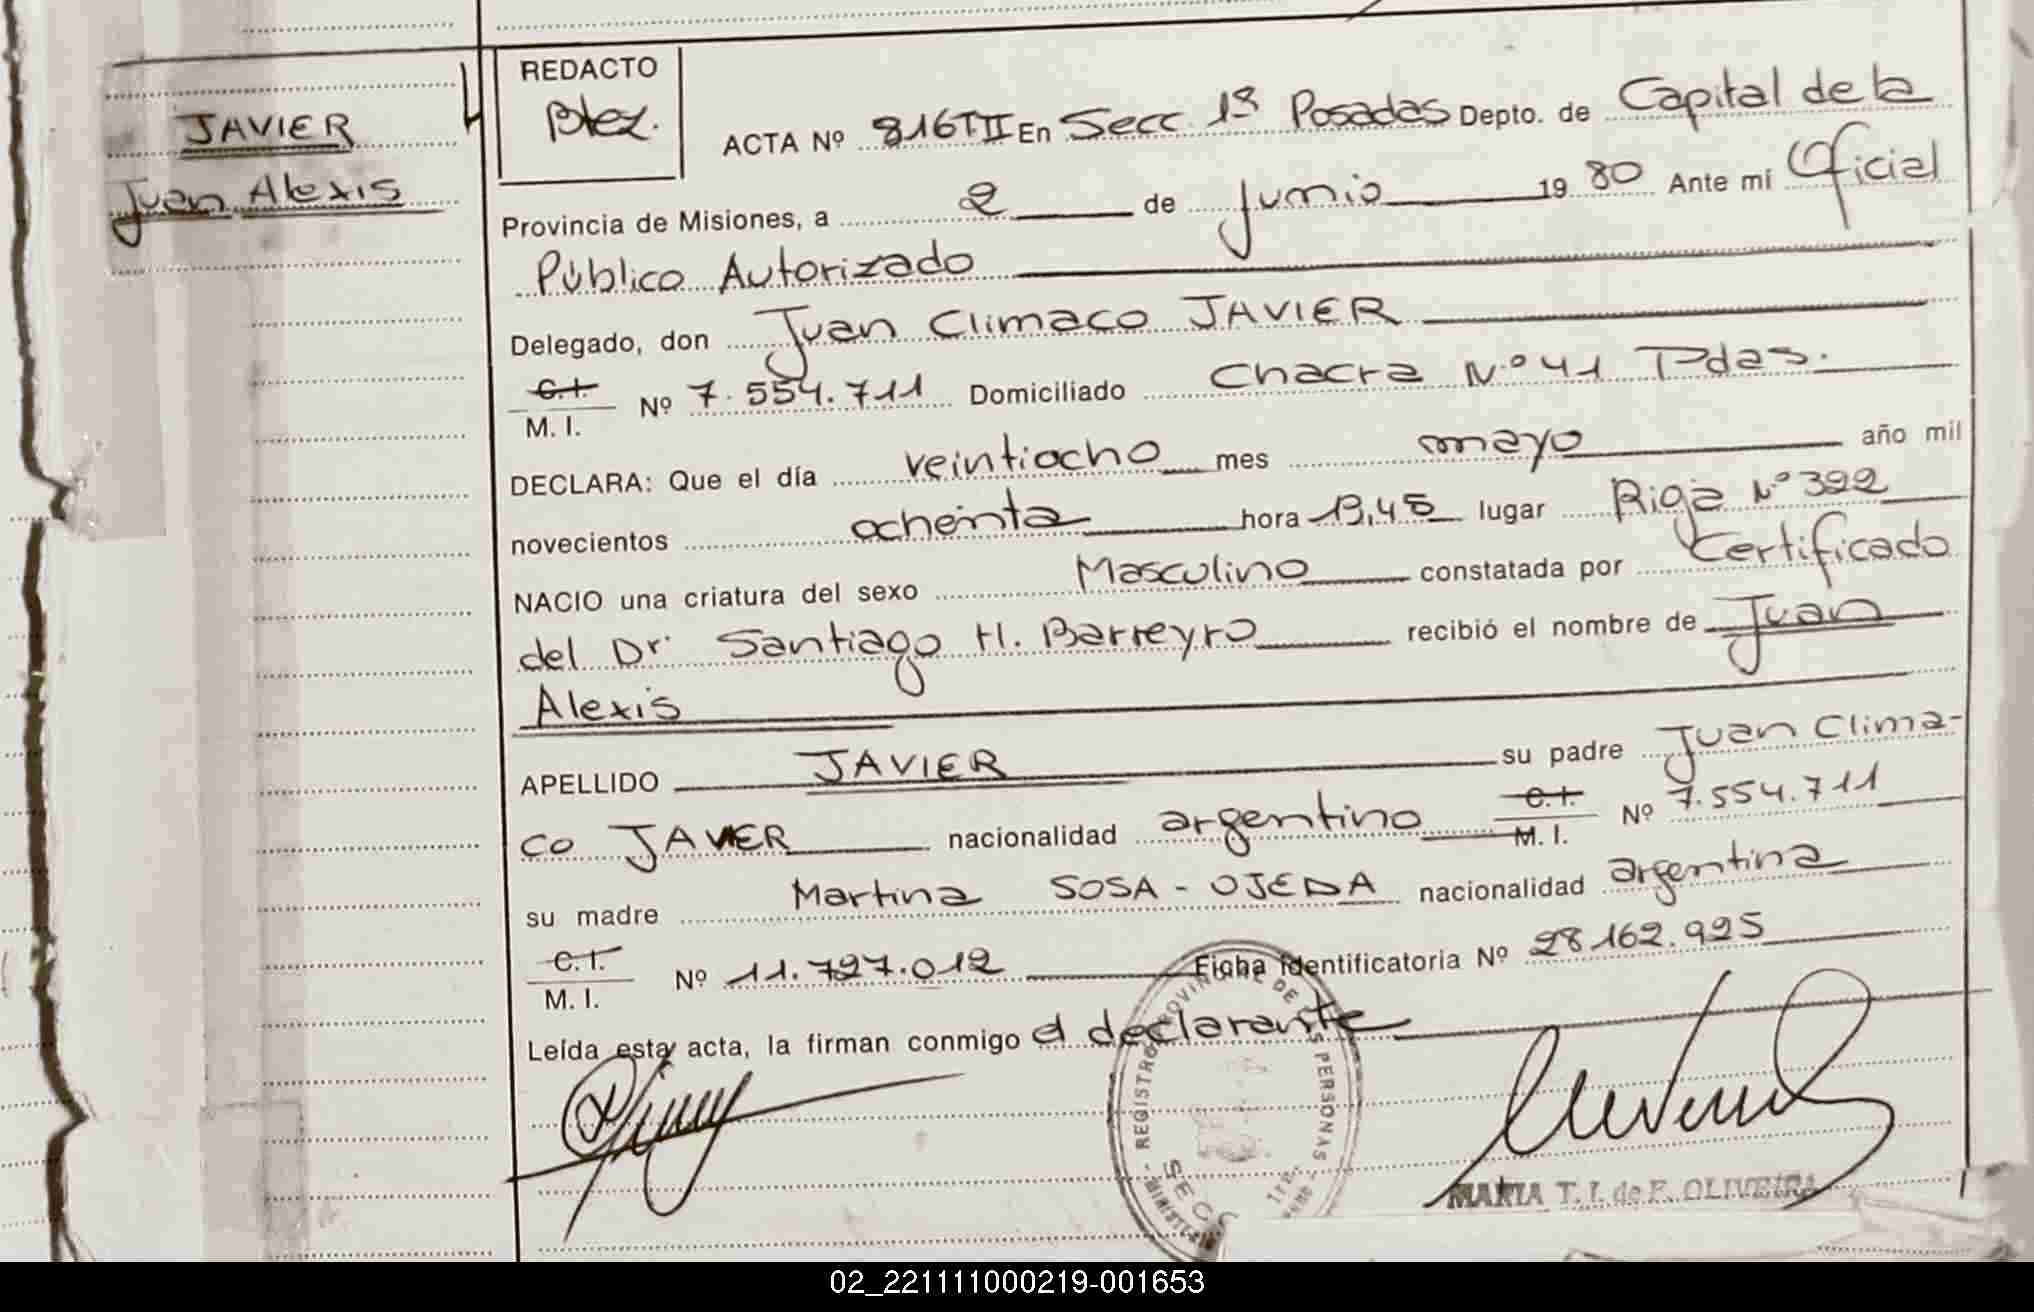 JAVIER
Juan Alexis
REDACTO
Btez.
ACTA Nº 816TII En Secc. 1ª Posadas Depto. de Capital de la
Provincia de Misiones, a 2 de Junio 19 80 Ante mí Oficial
Público Autorizado
Delegado, don Juan Climaco JAVIER
C.I. M. I. Nº 7.554.711 Domiciliado Chacra Nº 41 Pdas.
DECLARA: Que el día veintiocho mes mayo año mil
novecientos ochenta hora 13,45 lugar Rioja Nº 392
NACIO una criatura del sexo Masculino constatada por Certificado
del Dr Santiago H. Barreyro recibió el nombre de Juan
Alexis
APELLIDO JAVIER su padre Juan Clima-
co JAVIER nacionalidad argentino C.I. M. I. Nº 7.554.711
su madre Martina SOSA - OJEDA nacionalidad argentina
C.I. M. I. Nº 11.727.012 Ficha identificatoria Nº 28162.925
Leída esta acta, la firman conmigo el declarante
REGISTRO PROVINCIAL DE LAS PERSONAS
SECC 1ra.
MARIA T. I. de F. OLIVEIRA
02_221111000219-001653